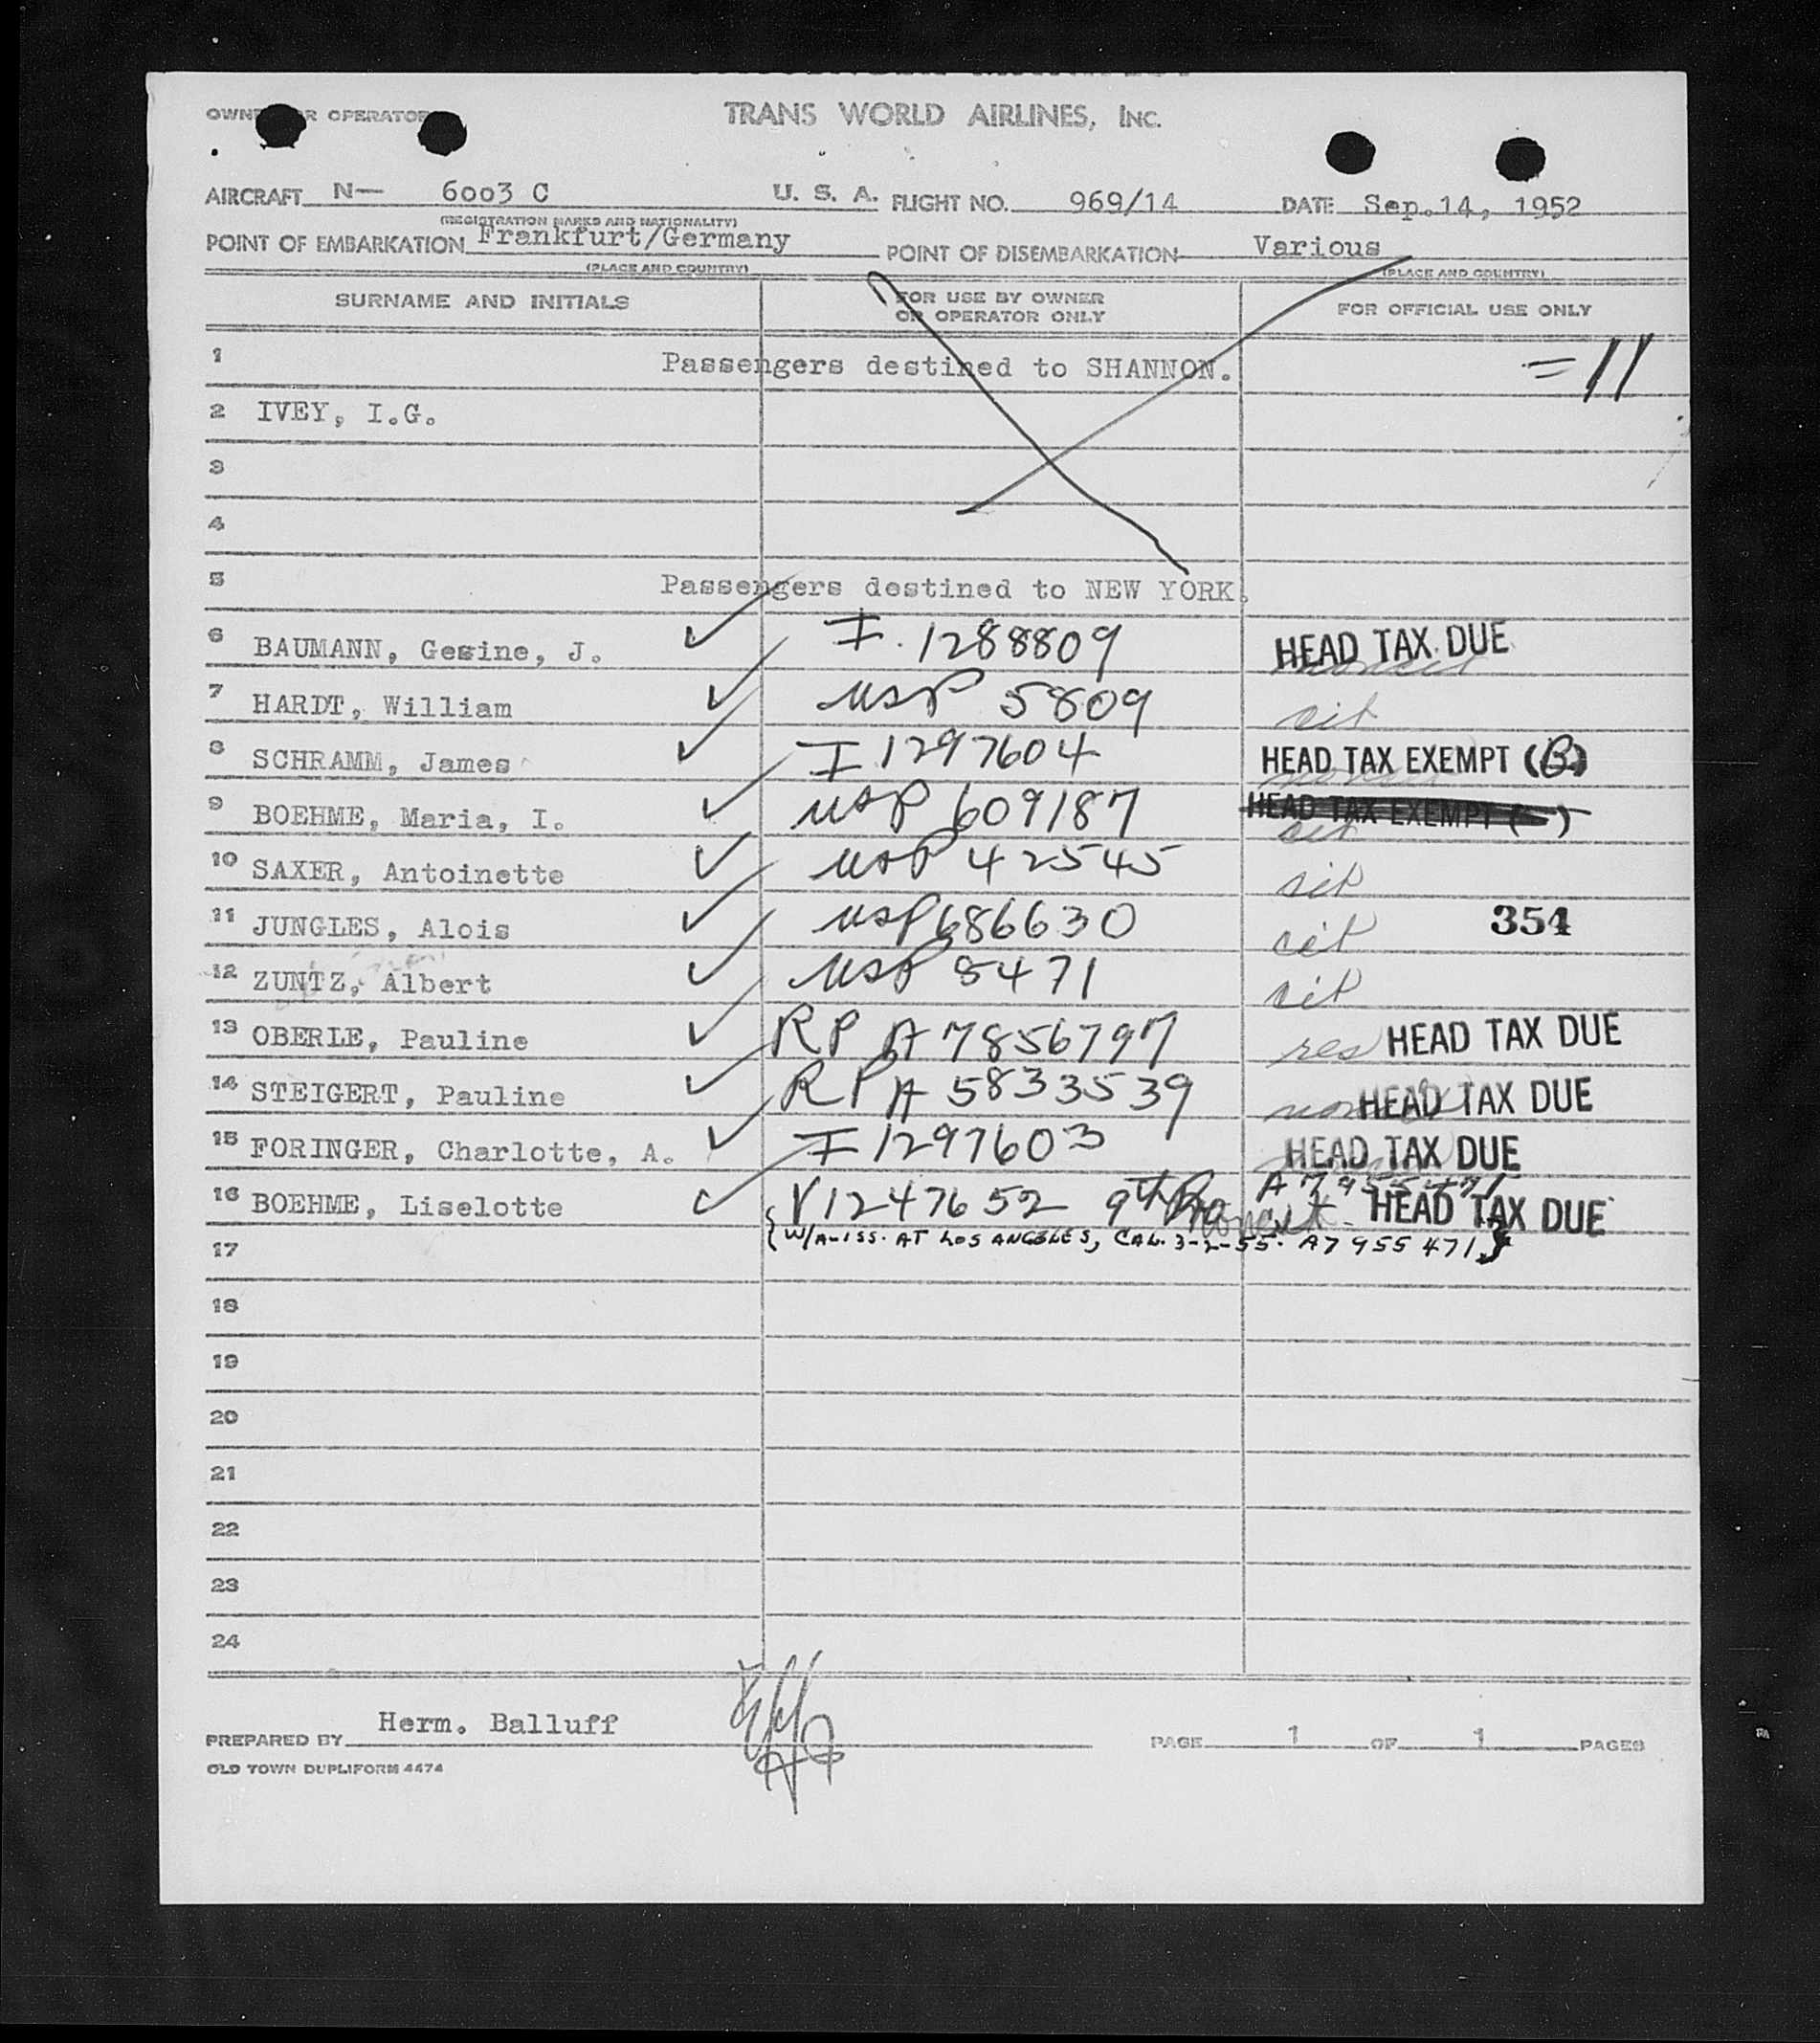 OWNER OR OPERATOR
TRANS WORLD AIRLINES, INC.
AIRCRAFT N— 6003 C U. S. A. FLIGHT NO. 969/14 DATE Sep.14, 1952
(REGISTRATION MARKS AND NATIONALITY)
POINT OF EMBARKATION Frankfurt/Germany POINT OF DISEMBARKATION Various
(PLACE AND COUNTRY) (PLACE AND COUNTRY)
SURNAME AND INITIALS FOR USE BY OWNER OR OPERATOR ONLY FOR OFFICIAL USE ONLY
1 Passengers destined to SHANNON. =11
2 IVEY, I.G.
3
4
5 Passengers destined to NEW YORK.
6 BAUMANN, Gesine, J. I. 1288809 HEAD TAX DUE noncit
7 HARDT, William USP 5809 cit
8 SCHRAMM, James I 1297604 HEAD TAX EXEMPT (B)
9 BOEHME, Maria, I. USP 609187 HEAD TAX EXEMPT ( ) cit
10 SAXER, Antoinette USP 42545 cit
11 JUNGLES, Alois USP 686630 cit 354
12 ZUNTZ, Albert USP 8471 cit
13 OBERLE, Pauline RP A 7856797 res HEAD TAX DUE
14 STEIGERT, Pauline RP A 5833539 HEAD TAX DUE
15 FORINGER, Charlotte, A. I 1297603 HEAD TAX DUE
A 7955471
16 BOEHME, Liselotte V 1247652 9th Pro noncit HEAD TAX DUE
17 {W/A-ISS. AT LOS ANGELES, CAL. 3-2-55. A7 955 471}
18
19
20
21
22
23
24
PREPARED BY Herm. Balluff PAGE 1 OF 1 PAGES
OLD TOWN DUPLIFORM 4474